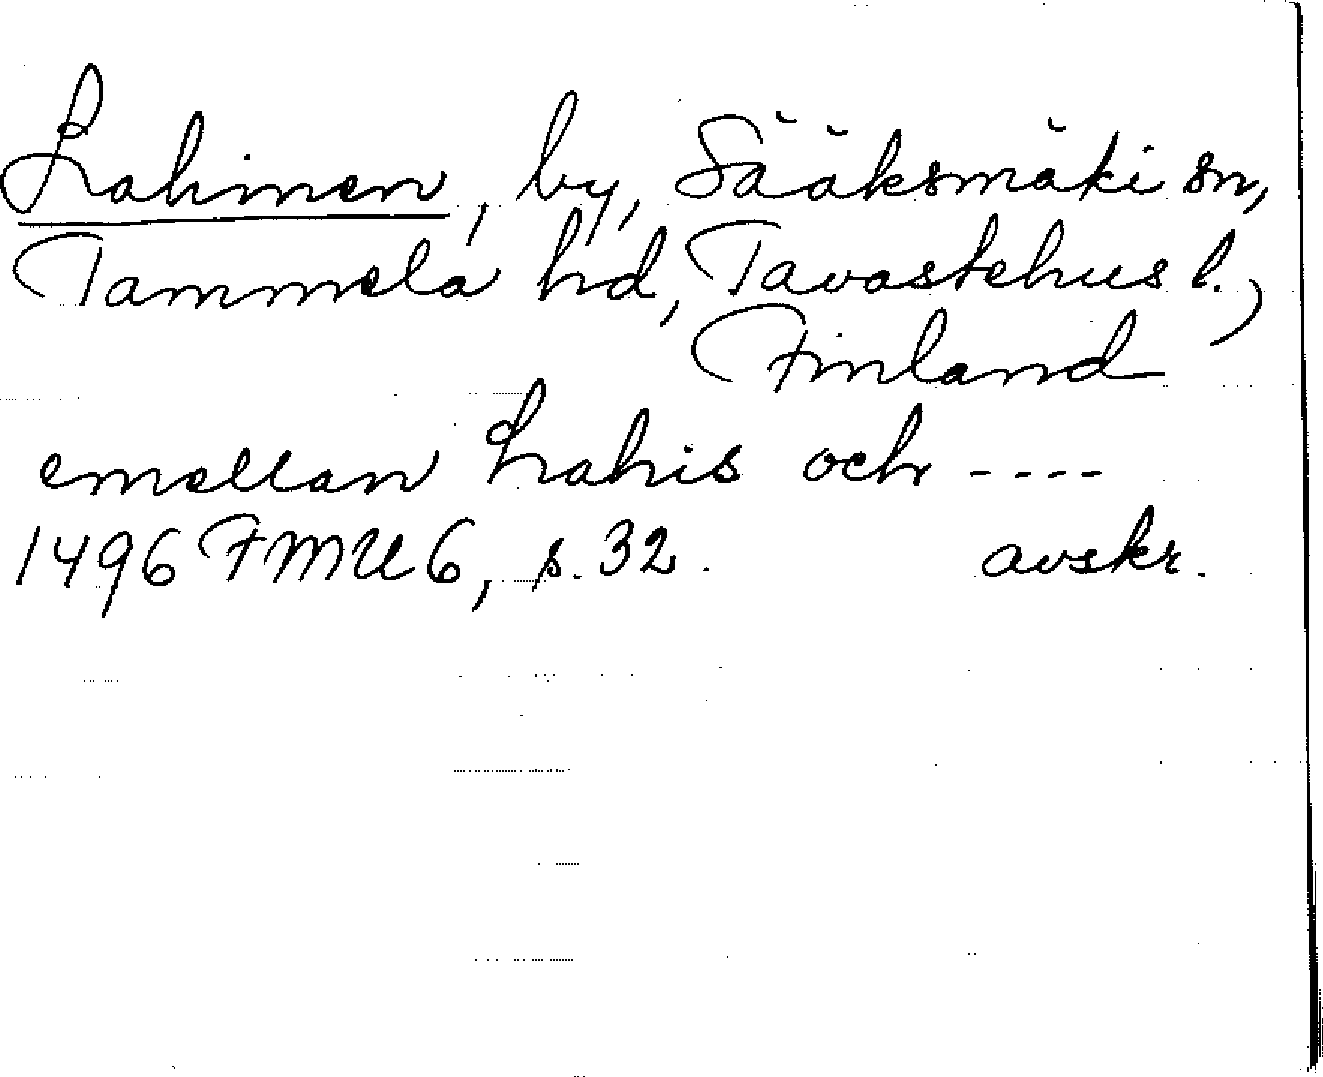 Lahinen, by, Sääksmäki sn,
Tammela hd, Tavastehus l.,
Finland
emellan Lahis och ----
1496 FMU 6, s. 32. avskr.